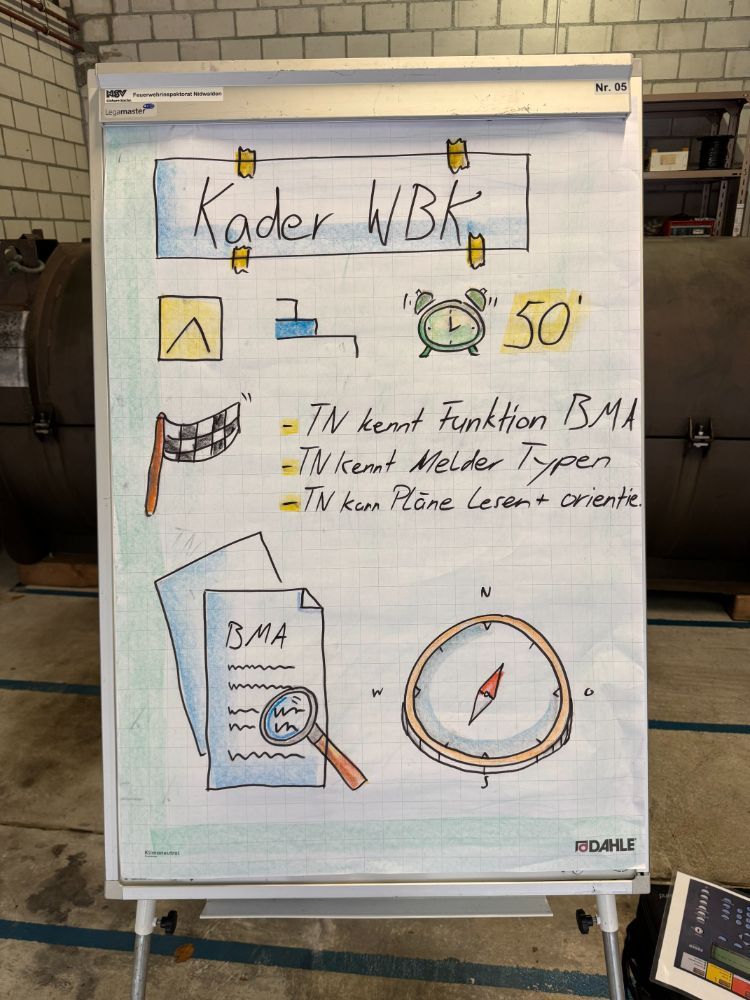 NSV
Feuerwehrinspektorat Nidwalden
Legamaster
Nr. 05
Kader WBK
50'
- TN kennt Funktion BMA
- TN kennt Melder Typen
- TN kann Pläne Lesen + orientie.
TN
BMA
N
W
O
S
Klimaneutral
DAHLE